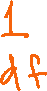 1
df